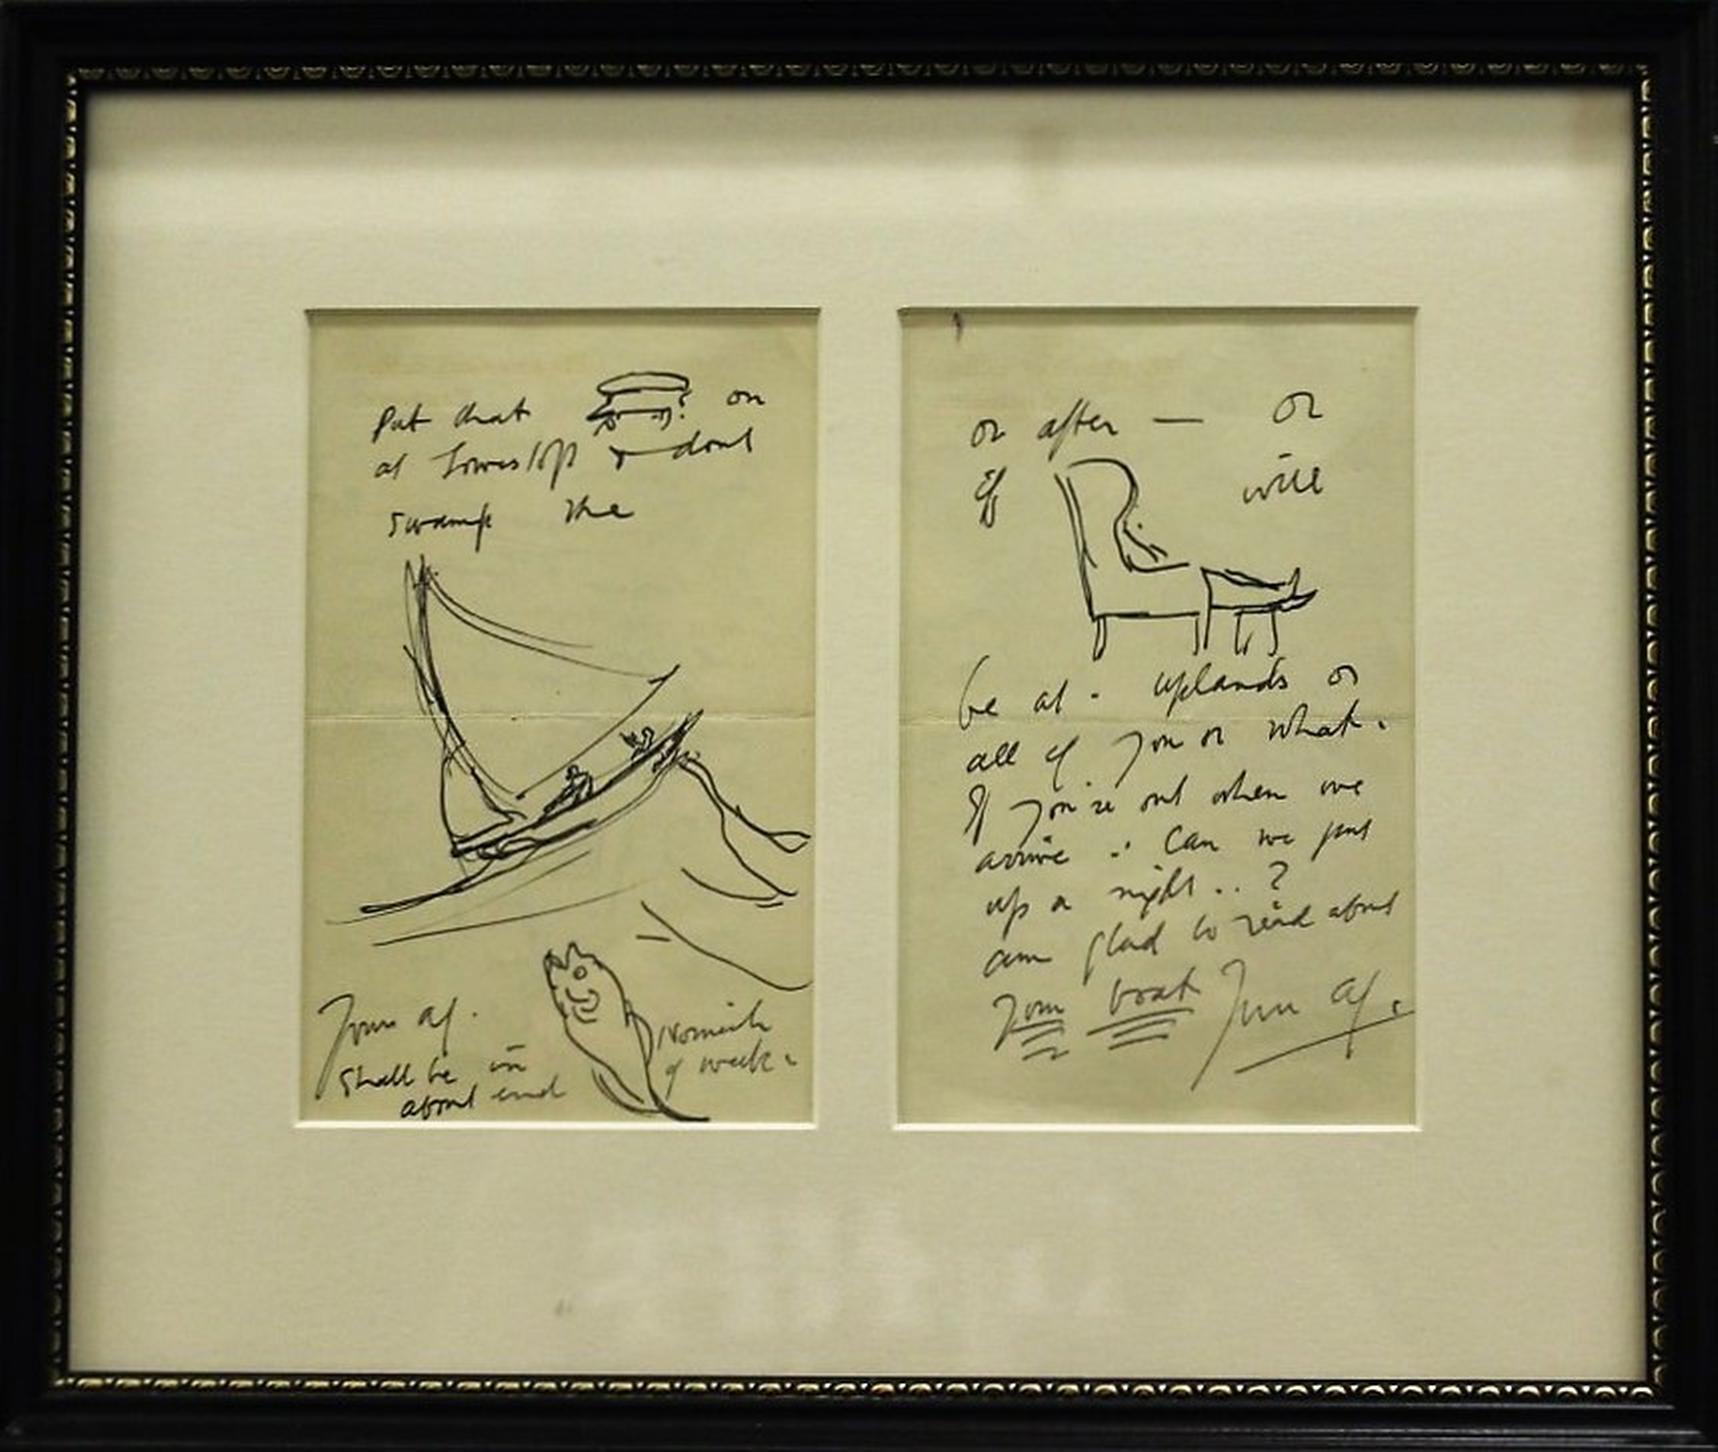 Put that on
at Lowestoft & dont
swamp the
Yours af.
shall be in Norwich
about end of week.
or after — or
if will
be at. uplands or
all of you or what.
If you're out when we
arrive .. Can we put
up a night .. ?
am glad to read about
Your boat Yours af.